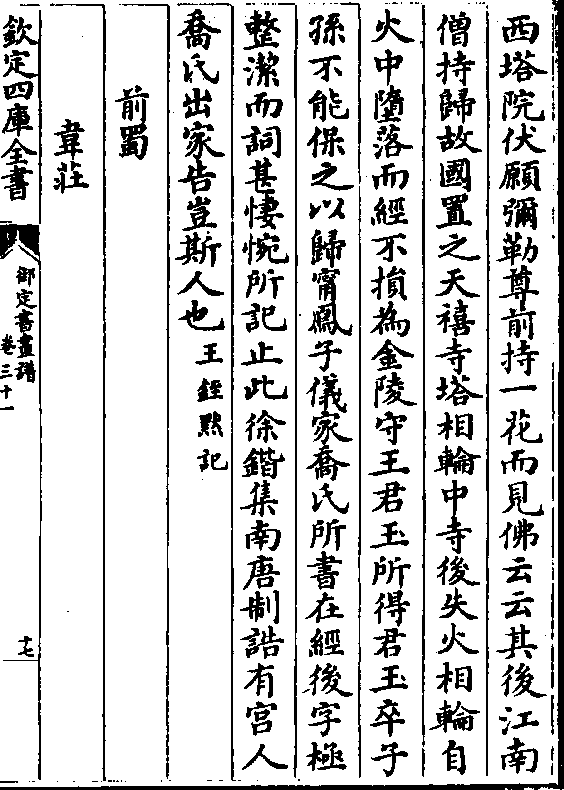 西塔院伏願彌勒尊前持一花而見佛云云其後江南
僧持歸故國置之天禧寺塔相輪中寺後失火相輪自
火中墮落而經不損為金陵守王君玉所得君玉卒子
孫不能保之以歸甯鳳子儀家喬氏所書在經後字極
整潔而詞甚悽惋所記止此徐鍇集南唐制誥有宫人
喬氏出家告豈斯人也王銍默記
前蜀
韋莊
欽定四庫全書
御定書畫譜
卷三十一
十七